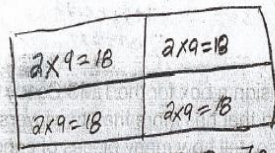 2x9=18 2x9=18
2x9=18 2x9=18